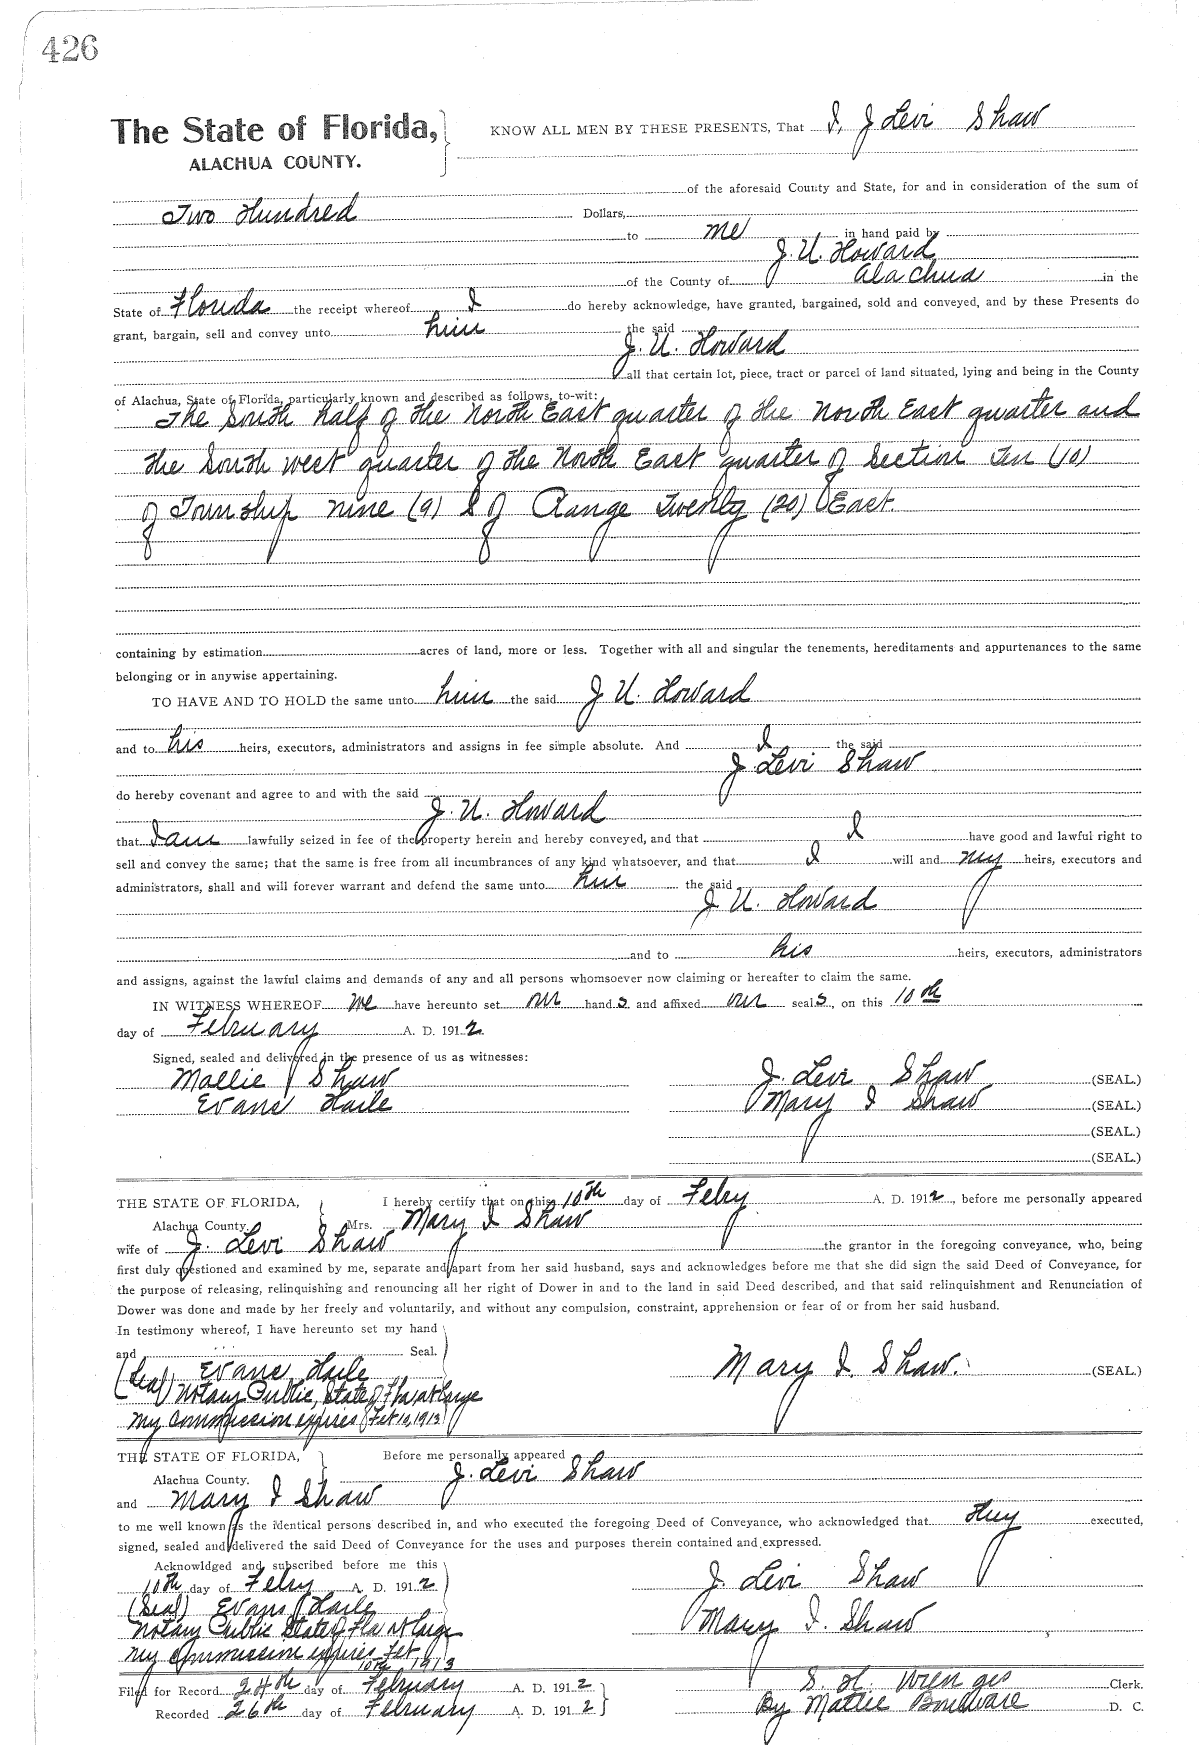 426
The State of Florida, KNOW ALL MEN BY THESE PRESENTS, That I, J Levi Shaw
ALACHUA COUNTY.
of the aforesaid County and State, for and in consideration of the sum of
Two Hundred Dollars,
to me in hand paid by
J. U. Howard
of the County of Alachua in the
State of Florida the receipt whereof I do hereby acknowledge, have granted, bargained, sold and conveyed, and by these Presents do
grant, bargain, sell and convey unto him the said
J. U. Howard
all that certain lot, piece, tract or parcel of land situated, lying and being in the County
of Alachua, State of Florida, particularly known and described as follows, to-wit:
The South half of the North East quarter of the North East quarter and
the South west quarter of the North East quarter of Section Ten (10)
of Township nine (9) S of Range Twenty (20) East.
containing by estimation acres of land, more or less. Together with all and singular the tenements, hereditaments and appurtenances to the same
belonging or in anywise appertaining.
TO HAVE AND TO HOLD the same unto him the said J U. Howard
and to his heirs, executors, administrators and assigns in fee simple absolute. And I the said
J Levi Shaw
do hereby covenant and agree to and with the said
J. U. Howard
that I am lawfully seized in fee of the property herein and hereby conveyed, and that I have good and lawful right to
sell and convey the same; that the same is free from all incumbrances of any kind whatsoever, and that I will and my heirs, executors and
administrators, shall and will forever warrant and defend the same unto him the said
J U. Howard
and to his heirs, executors, administrators
and assigns, against the lawful claims and demands of any and all persons whomsoever now claiming or hereafter to claim the same.
IN WITNESS WHEREOF we have hereunto set our hands and affixed our seals, on this 10th
day of February A. D. 1912
Signed, sealed and delivered in the presence of us as witnesses:
Mallie Shaw J. Levi Shaw (SEAL.)
Evans Haile Mary I Shaw (SEAL.)
(SEAL.)
(SEAL.)
THE STATE OF FLORIDA, I hereby certify that on this 10th day of Feby A. D. 1912, before me personally appeared
Alachua County. Mrs. Mary I Shaw
wife of J. Levi Shaw the grantor in the foregoing conveyance, who, being
first duly questioned and examined by me, separate and apart from her said husband, says and acknowledges before me that she did sign the said Deed of Conveyance, for
the purpose of releasing, relinquishing and renouncing all her right of Dower in and to the land in said Deed described, and that said relinquishment and Renunciation of
Dower was done and made by her freely and voluntarily, and without any compulsion, constraint, apprehension or fear of or from her said husband.
In testimony whereof, I have hereunto set my hand
and Seal.
(Seal) Evans Haile Mary I Shaw. (SEAL)
Notary Public, State of Fla at Large
My commission expires Feb 10, 1913
THE STATE OF FLORIDA, Before me personally appeared
Alachua County. J. Levi Shaw
and Mary I Shaw
to me well known as the identical persons described in, and who executed the foregoing Deed of Conveyance, who acknowledged that they executed,
signed, sealed and delivered the said Deed of Conveyance for the uses and purposes therein contained and expressed.
Acknowldged and subscribed before me this
10th day of Feby A. D. 1912 J. Levi Shaw
(Seal) Evans Haile
Notary Public State of Fla at Large Mary I. Shaw
My commission expires Feb
10th 1913
Filed for Record 24th day of February A. D. 1912 S. H. Wienges Clerk.
Recorded 26th day of February A. D. 1912 By Mattie Bouleware D. C.